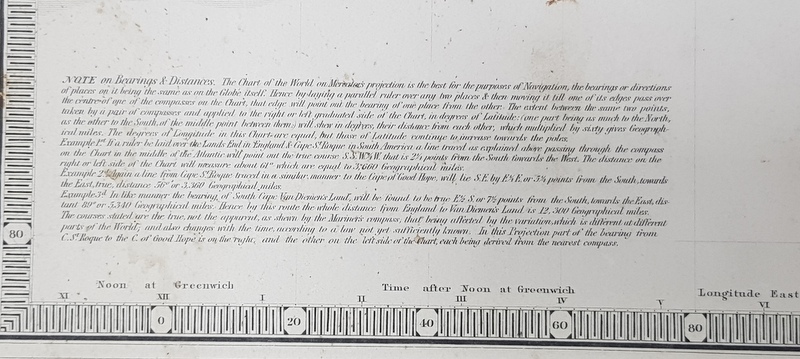 NOTE on Bearings & Distances. The Chart of the World on Mercator's projection is the best for the purposes of Navigation, the bearings or directions
of places on it being the same as on the Globe itself. Hence by laying a parallel ruler over any two places & then moving it till one of its edges pass over
the centre of one of the compasses on the Chart, that edge will point out the bearing of one place from the other. The extent between the same two points,
taken by a pair of compasses and applied to the right or left graduated side of the Chart, in degrees of Latitude: (one part being as much to the North,
as the other to the South, of the middle point between them) will shew in degrees, their distance from each other, which multiplied by sixty gives Geograph-
ical miles. The degrees of Longitude in this Chart are equal, but those of Latitude continue to increase towards the poles.
Example 1st. If a ruler be laid over the Lands End in England & Cape St. Roque in South America a line traced as explained above passing through the compass
on the Chart in the middle of the Atlantic will point out the true course S.S.W.¼W. that is 2¼ points from the South towards the West. The distance on the
right or left side of the Chart will measure about 61° which are equal to 3,660 Geographical miles.
Example 2d. Again a line from Cape St. Roque traced in a similar manner to the Cape of Good Hope, will lie S.E. by E¼E. or 5¼ points from the South, towards
the East, true, distance 56° or 3,360 Geographical miles.
Example 3d. In like manner the bearing of South Cape Van Diemen's Land, will be found to be true E½S. or 7½ points from the South, towards the East, dis-
tant 89° or 5,340 Geographical miles. Hence by this route the whole distance from England to Van Diemen's Land is 12,360 Geographical miles.
The courses stated are the true, not the apparent, as shewn by the Mariner's compass, that being affected by the variation, which is different at different
parts of the World, and also changes with the time, according to a law not yet sufficiently known. In this Projection part of the bearing from
C. St. Roque to the C. of Good Hope is on the right, and the other on the left side of the Chart, each being derived from the nearest compass.
80
Noon at Greenwich
Time after Noon at Greenwich
Longitude East
XI XII I II III IV V VI
0 20 40 60 80